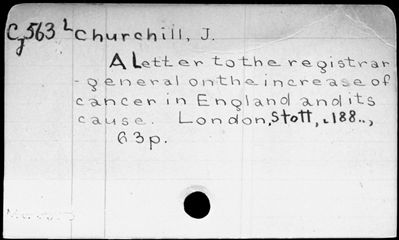 Cg563 L Churchill, J.
A Letter to the registrar
-general on the increase of
cancer in England and its
cause. London, Stott, c188..,
63p.